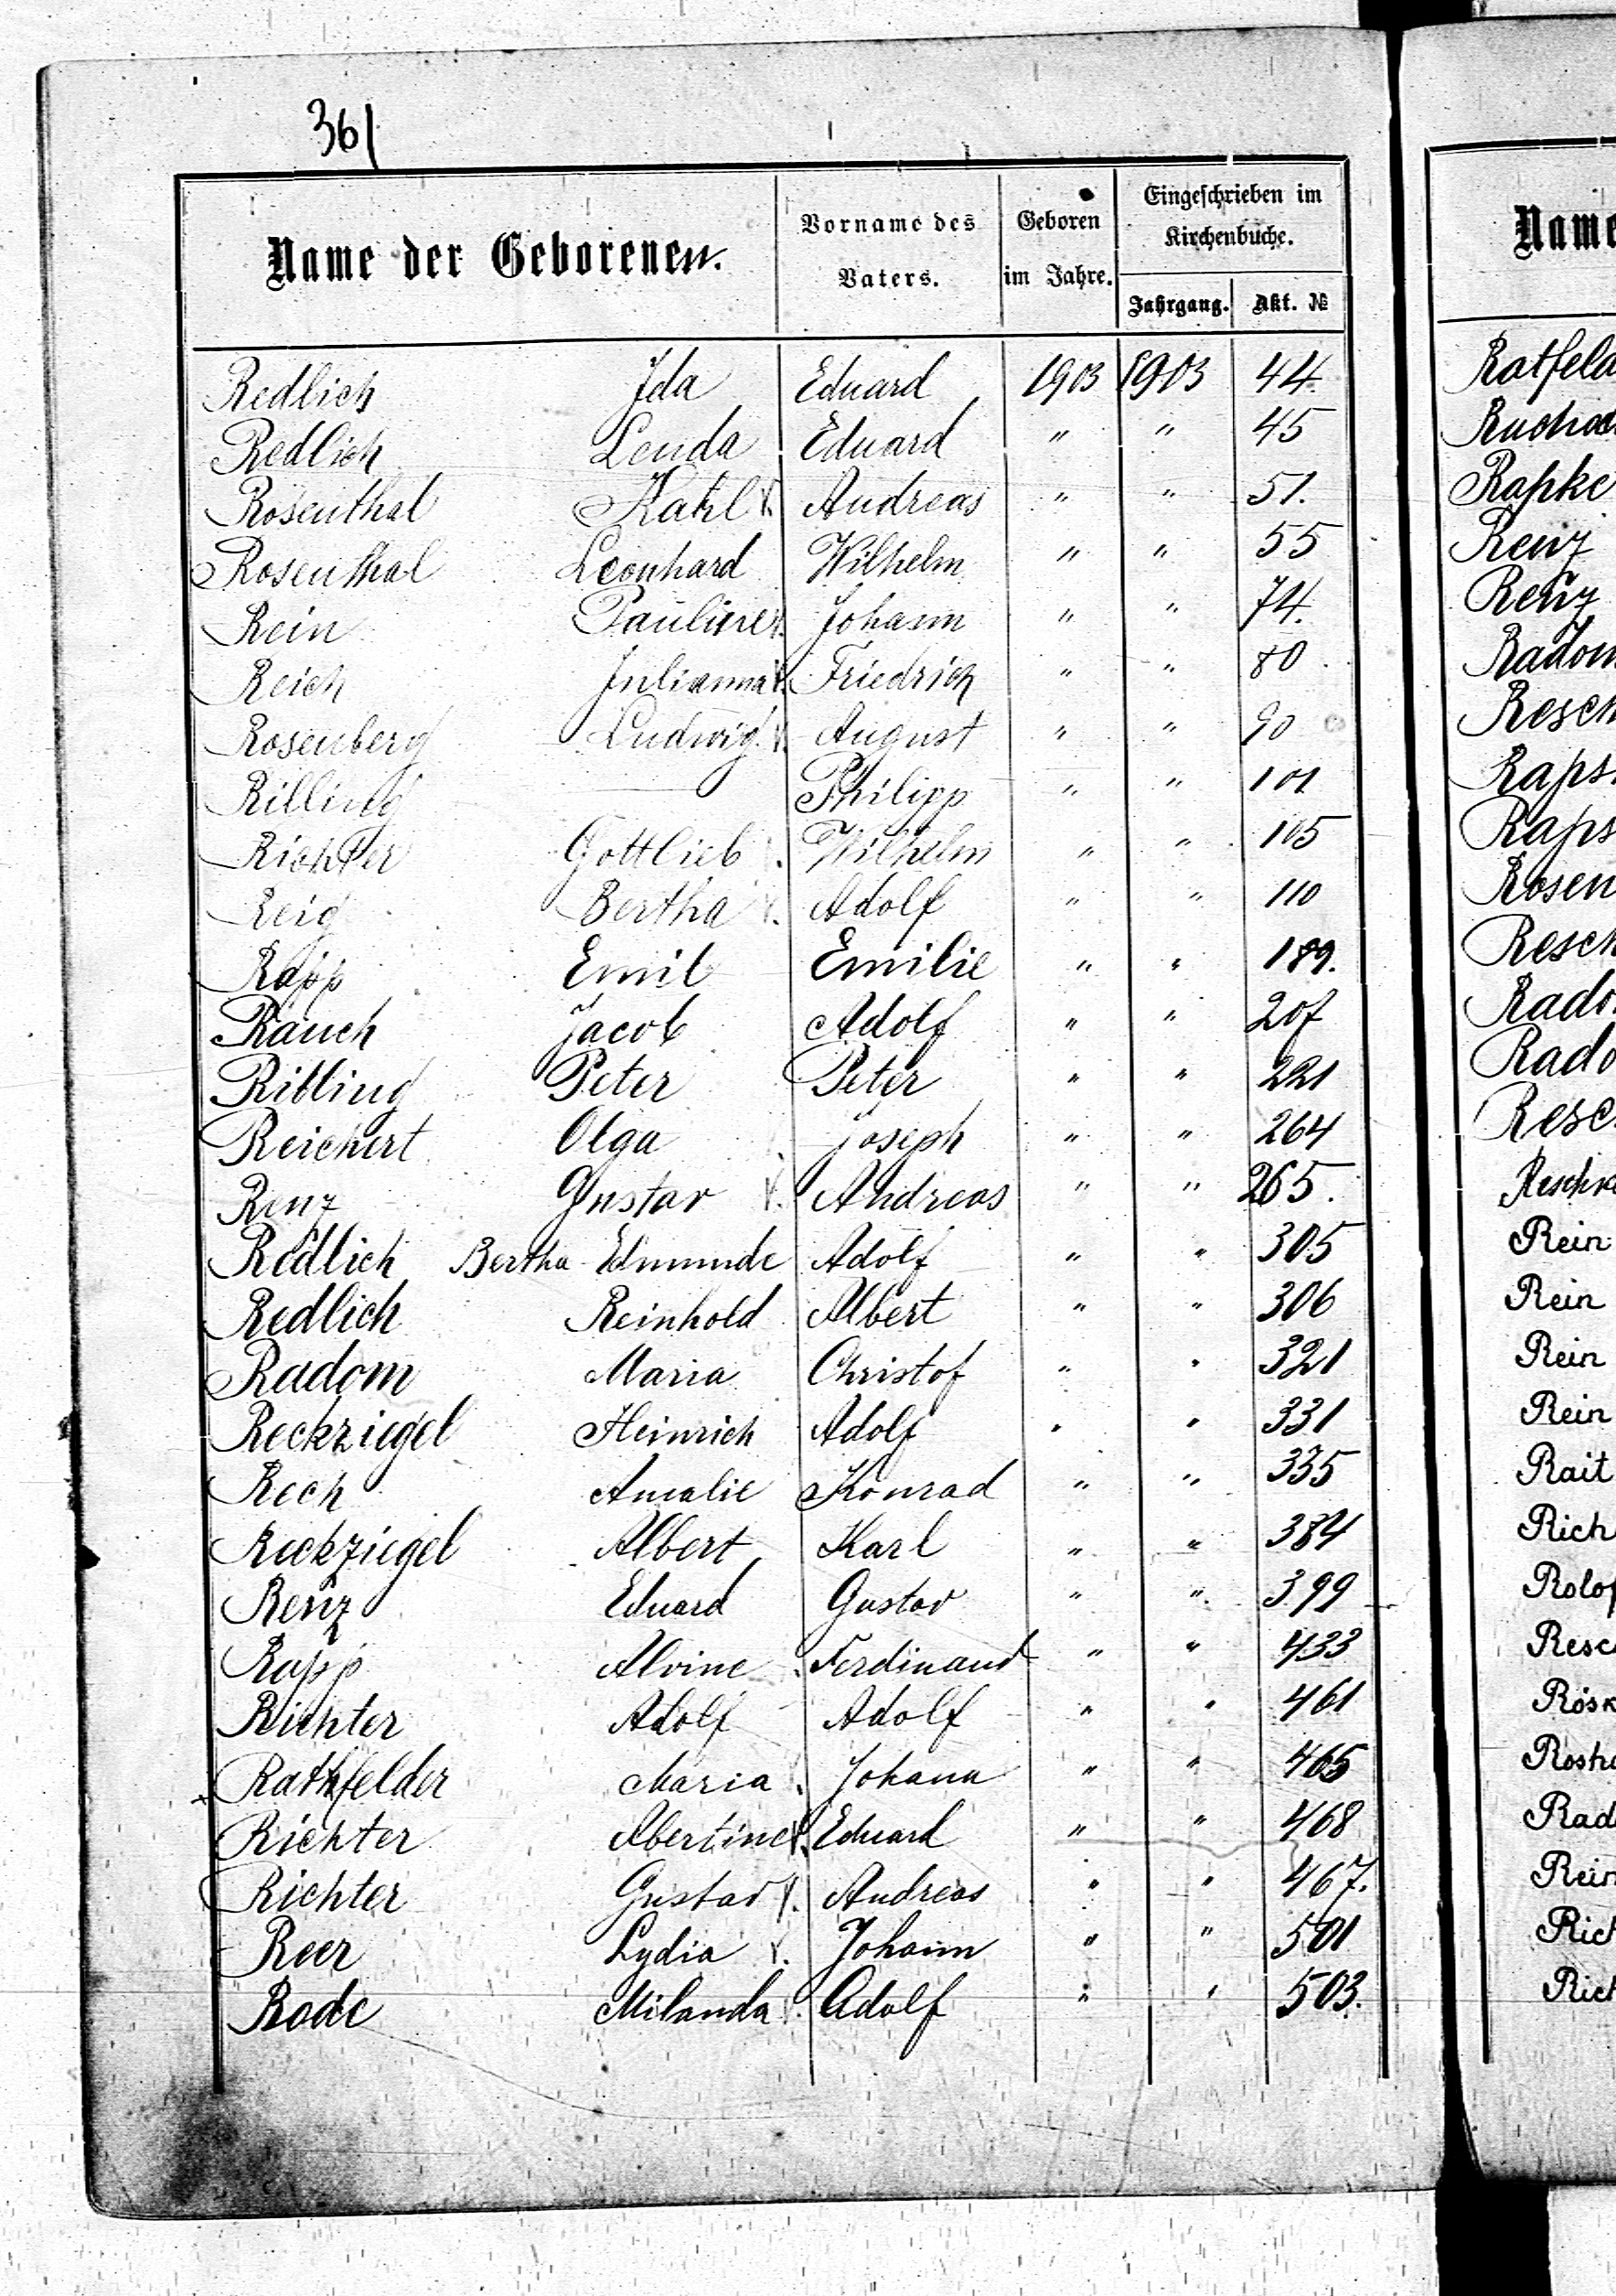 361
Name der Geborenen.
Vorname des Vaters.
Geboren im Jahre.
Eingeschrieben im Kirchenbuche.
Jahrgang. Akt. №
Redlich Ida Eduard 1903 1903 44
Redlich Lenda Eduard " " 45
Rosenthal Kahl Andreas " " 51.
Rosenthal Leonhard Wilhelm " " 55
Rein Pauline Johann " " 74.
Reich Julianna Friedrich " " 80
Rosenberg Ludwig August " " 90
Rilling — Philipp " " 101
Richter Gottlieb Wilhelm " " 105
Reig Bertha Adolf " " 110
Rapp Emil Emilie " " 189.
Rauch Jacob Adolf " " 207
Ribling Peter Peter " " 221
Reichert Olga Joseph " " 264
Renz Gustav Andreas " " 265.
Redlich Bertha Edmunde Adolf " " 305
Redlich Reinhold Albert " " 306
Radom Maria Christof " " 321
Reckziegel Heinrich Adolf " " 331
Rech Amalie Konrad " " 335
Reckziegel Albert Karl " " 384
Renz Eduard Gustav " " 399
Rapp Alvine Ferdinand " " 433
Richter Adolf Adolf " " 461
Rathfelder Maria Johann " " 465
Richter Abertine Eduard " " 468
Richter Gustav Andreas " " 467.
Reer Lydia Johann " " 501
Rode Milanda Adolf " " 503.
Name
Ratfeld
Rapke
Renz
Renz
Radom
Resch
Raps
Raps
Rosen
Resch
Rado
Rado
Resc
Reschke
Rein
Rein
Rein
Rein
Rait
Rich
Rolof
Resc
Rad
Rein
Rich
Rich